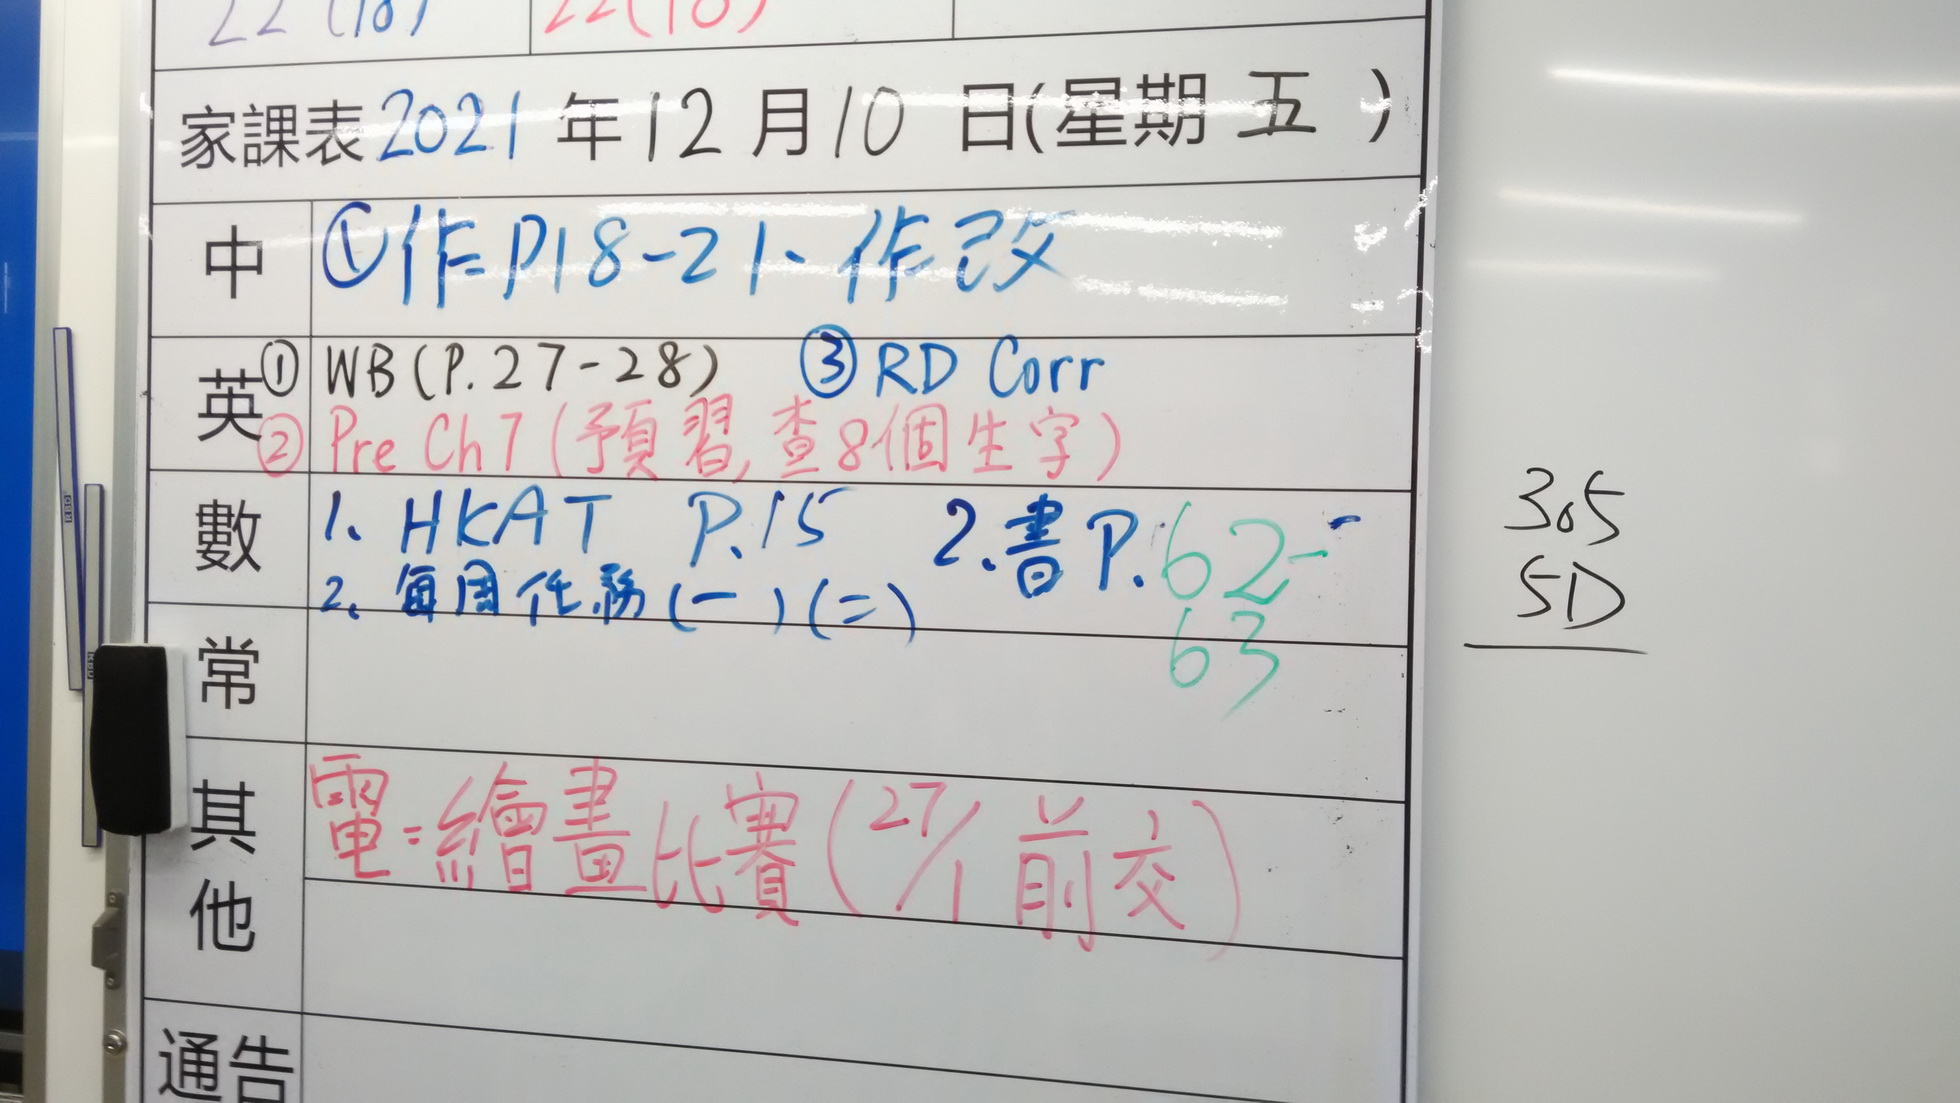 22 (18) 22 (18)
家課表2021年12月10日(星期五)
中 ①作P18-21、作改
英 ① WB (P.27-28) ③ RD Corr
② Pre Ch7 (預習,查8個生字)
數 1. HKAT P.15 2.書P.62-
2. 每周任務(一)(二) 63
常
其他 電=繪畫比賽(27/1前交)
通告
305
5D